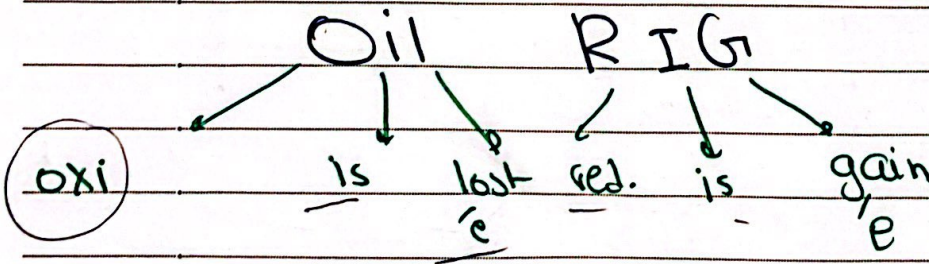 Oil RIG
oxi is lost red. is gain
é é